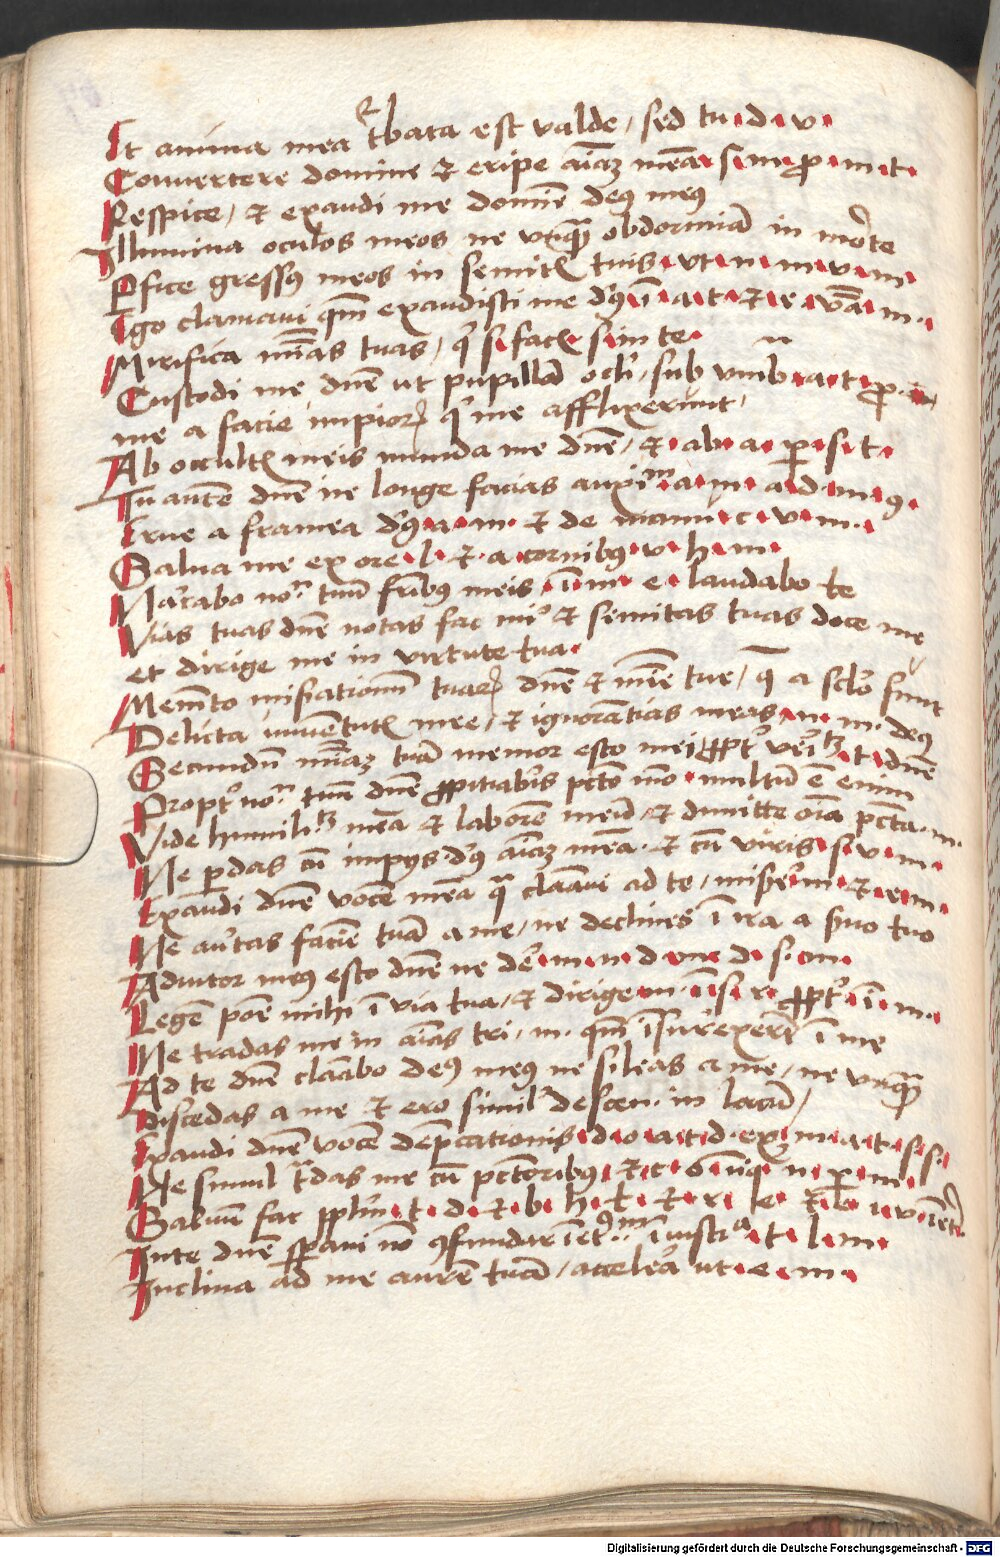 Et anima mea turbata est valde / sed tu · d · v ·
Convertere domine et eripe aiaz mea · s · m · p · m · t ·
Respice / et exaudi me domine deus meus
Illumina oculos meos ne unqua obdormia in morte
Perfice gressus meos in semitis tuis · ut · n · m · v · m ·
Ego clamavi qm exaudisti me deus · i · a · t · et · e · va · m ·
Mirifica mias tuas / q s · fac · s · in te ·
Custodi me dne ut pupilla oculi / sub umb · a · t · p ·
me a facie impior q me afflixerunt /
Ab occultis meis munda me dne / et · ab · a · p · s · t ·
Tu aute dne ne longe facias auxi · a · m · a · d · m · 9 ·
Erue a framea deus · a · m · et de manu · c · v · m ·
Salva me ex ore · l · et · a cornibus · v · h · m ·
Narrabo no tuu fribus meis · i · m · e · laudabo te
Vias tuas dne notas fac mi et semitas tuas doce me
et dirige me in virtute tua ·
Memeto miserationu tuar dne et mie tue / q a sclo sunt
Delicta iuventutis mee / et ignorantias meas · n · m · deus
Secundu miaz tua memor esto mei propt veri · t · dne
Propt no tuu dne propitiaberis pcto meo · multu e enim
Vide humilitz mea et labore meu / et dimitte oia pccta · m ·
Ne perdas cu impiis deus aiaz mea · et cu viris · s · v · m ·
Exaudi dne voce mea qua clamavi ad te / miserere m · et · e · m ·
Ne avertas facie tua a me / ne declines i ira a servo tuo
Adiutor meus esto dne ne der · m · n · d · me · d · s · m ·
Lege pone mihi i via tua / et dirige · m · i · s · r · propt · i · m ·
Ne tradas me in aias tri · m · qm isurrexert i me
Ad te dne clamabo deus meus ne sileas a me / ne unqua
Discedas a me et ero simil descen · in lacu /
Exaudi dne voce deprecationis · d · o · a · t · d · ex · m · a · t · s · s ·
Ne simul tradas me cu pctoribus · et · c · o · iniq · n · p · m ·
Salvu fac pplm · t · d · et · b · h · t · et · r · e · et · v · i · etr
In te dne speravi no confundar i etnu i iusti · t · l · m ·
Inclina ad me aure tua / accelera ut · e · m ·
Digitalisierung gefördert durch die Deutsche Forschungsgemeinschaft - DFG